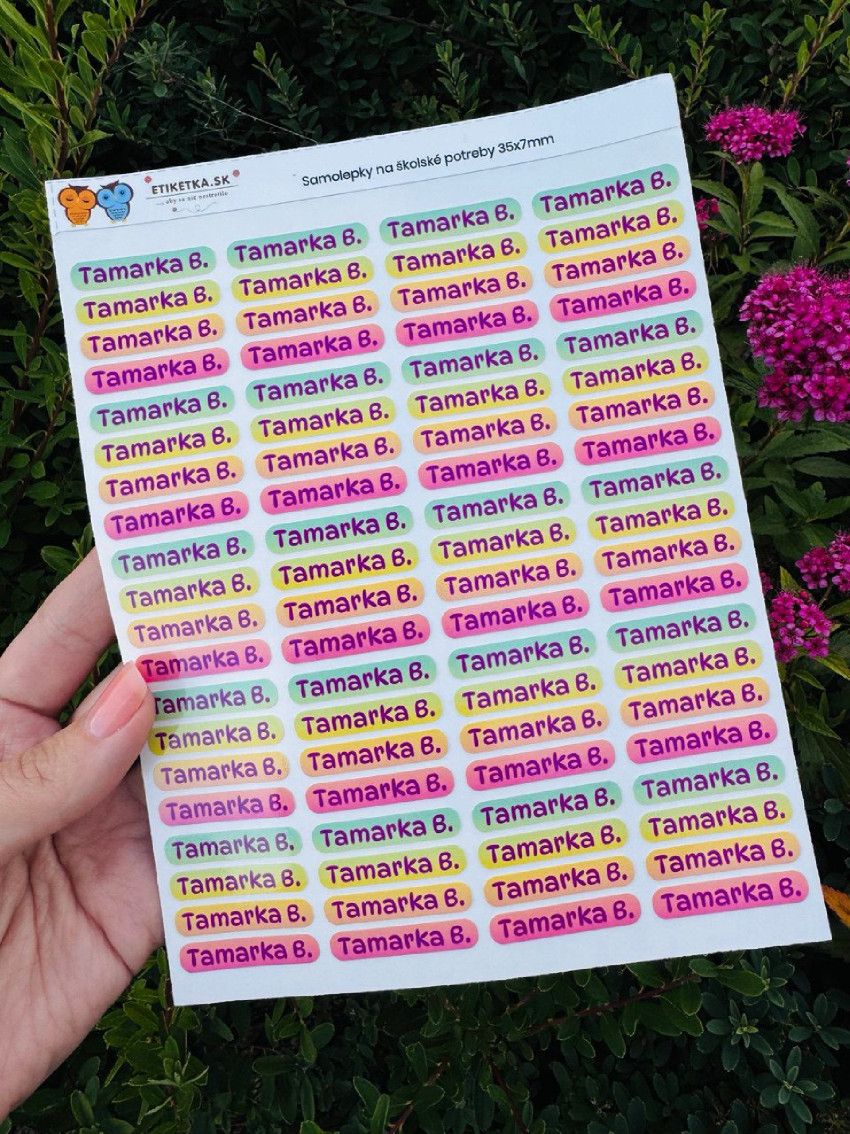 ETIKETKA.SK
aby sa nič nestratilo
Samolepky na školské potreby 35x7mm
Tamarka B. Tamarka B. Tamarka B. Tamarka B.
Tamarka B. Tamarka B. Tamarka B. Tamarka B.
Tamarka B. Tamarka B. Tamarka B. Tamarka B.
Tamarka B. Tamarka B. Tamarka B. Tamarka B.
Tamarka B. Tamarka B. Tamarka B. Tamarka B.
Tamarka B. Tamarka B. Tamarka B. Tamarka B.
Tamarka B. Tamarka B. Tamarka B. Tamarka B.
Tamarka B. Tamarka B. Tamarka B. Tamarka B.
Tamarka B. Tamarka B. Tamarka B. Tamarka B.
Tamarka B. Tamarka B. Tamarka B. Tamarka B.
Tamarka B. Tamarka B. Tamarka B. Tamarka B.
Tamarka B. Tamarka B. Tamarka B. Tamarka B.
Tamarka B. Tamarka B. Tamarka B. Tamarka B.
Tamarka B. Tamarka B. Tamarka B. Tamarka B.
Tamarka B. Tamarka B. Tamarka B. Tamarka B.
Tamarka B. Tamarka B. Tamarka B. Tamarka B.
Tamarka B. Tamarka B. Tamarka B. Tamarka B.
Tamarka B. Tamarka B. Tamarka B. Tamarka B.
Tamarka B. Tamarka B. Tamarka B. Tamarka B.
Tamarka B. Tamarka B. Tamarka B. Tamarka B.